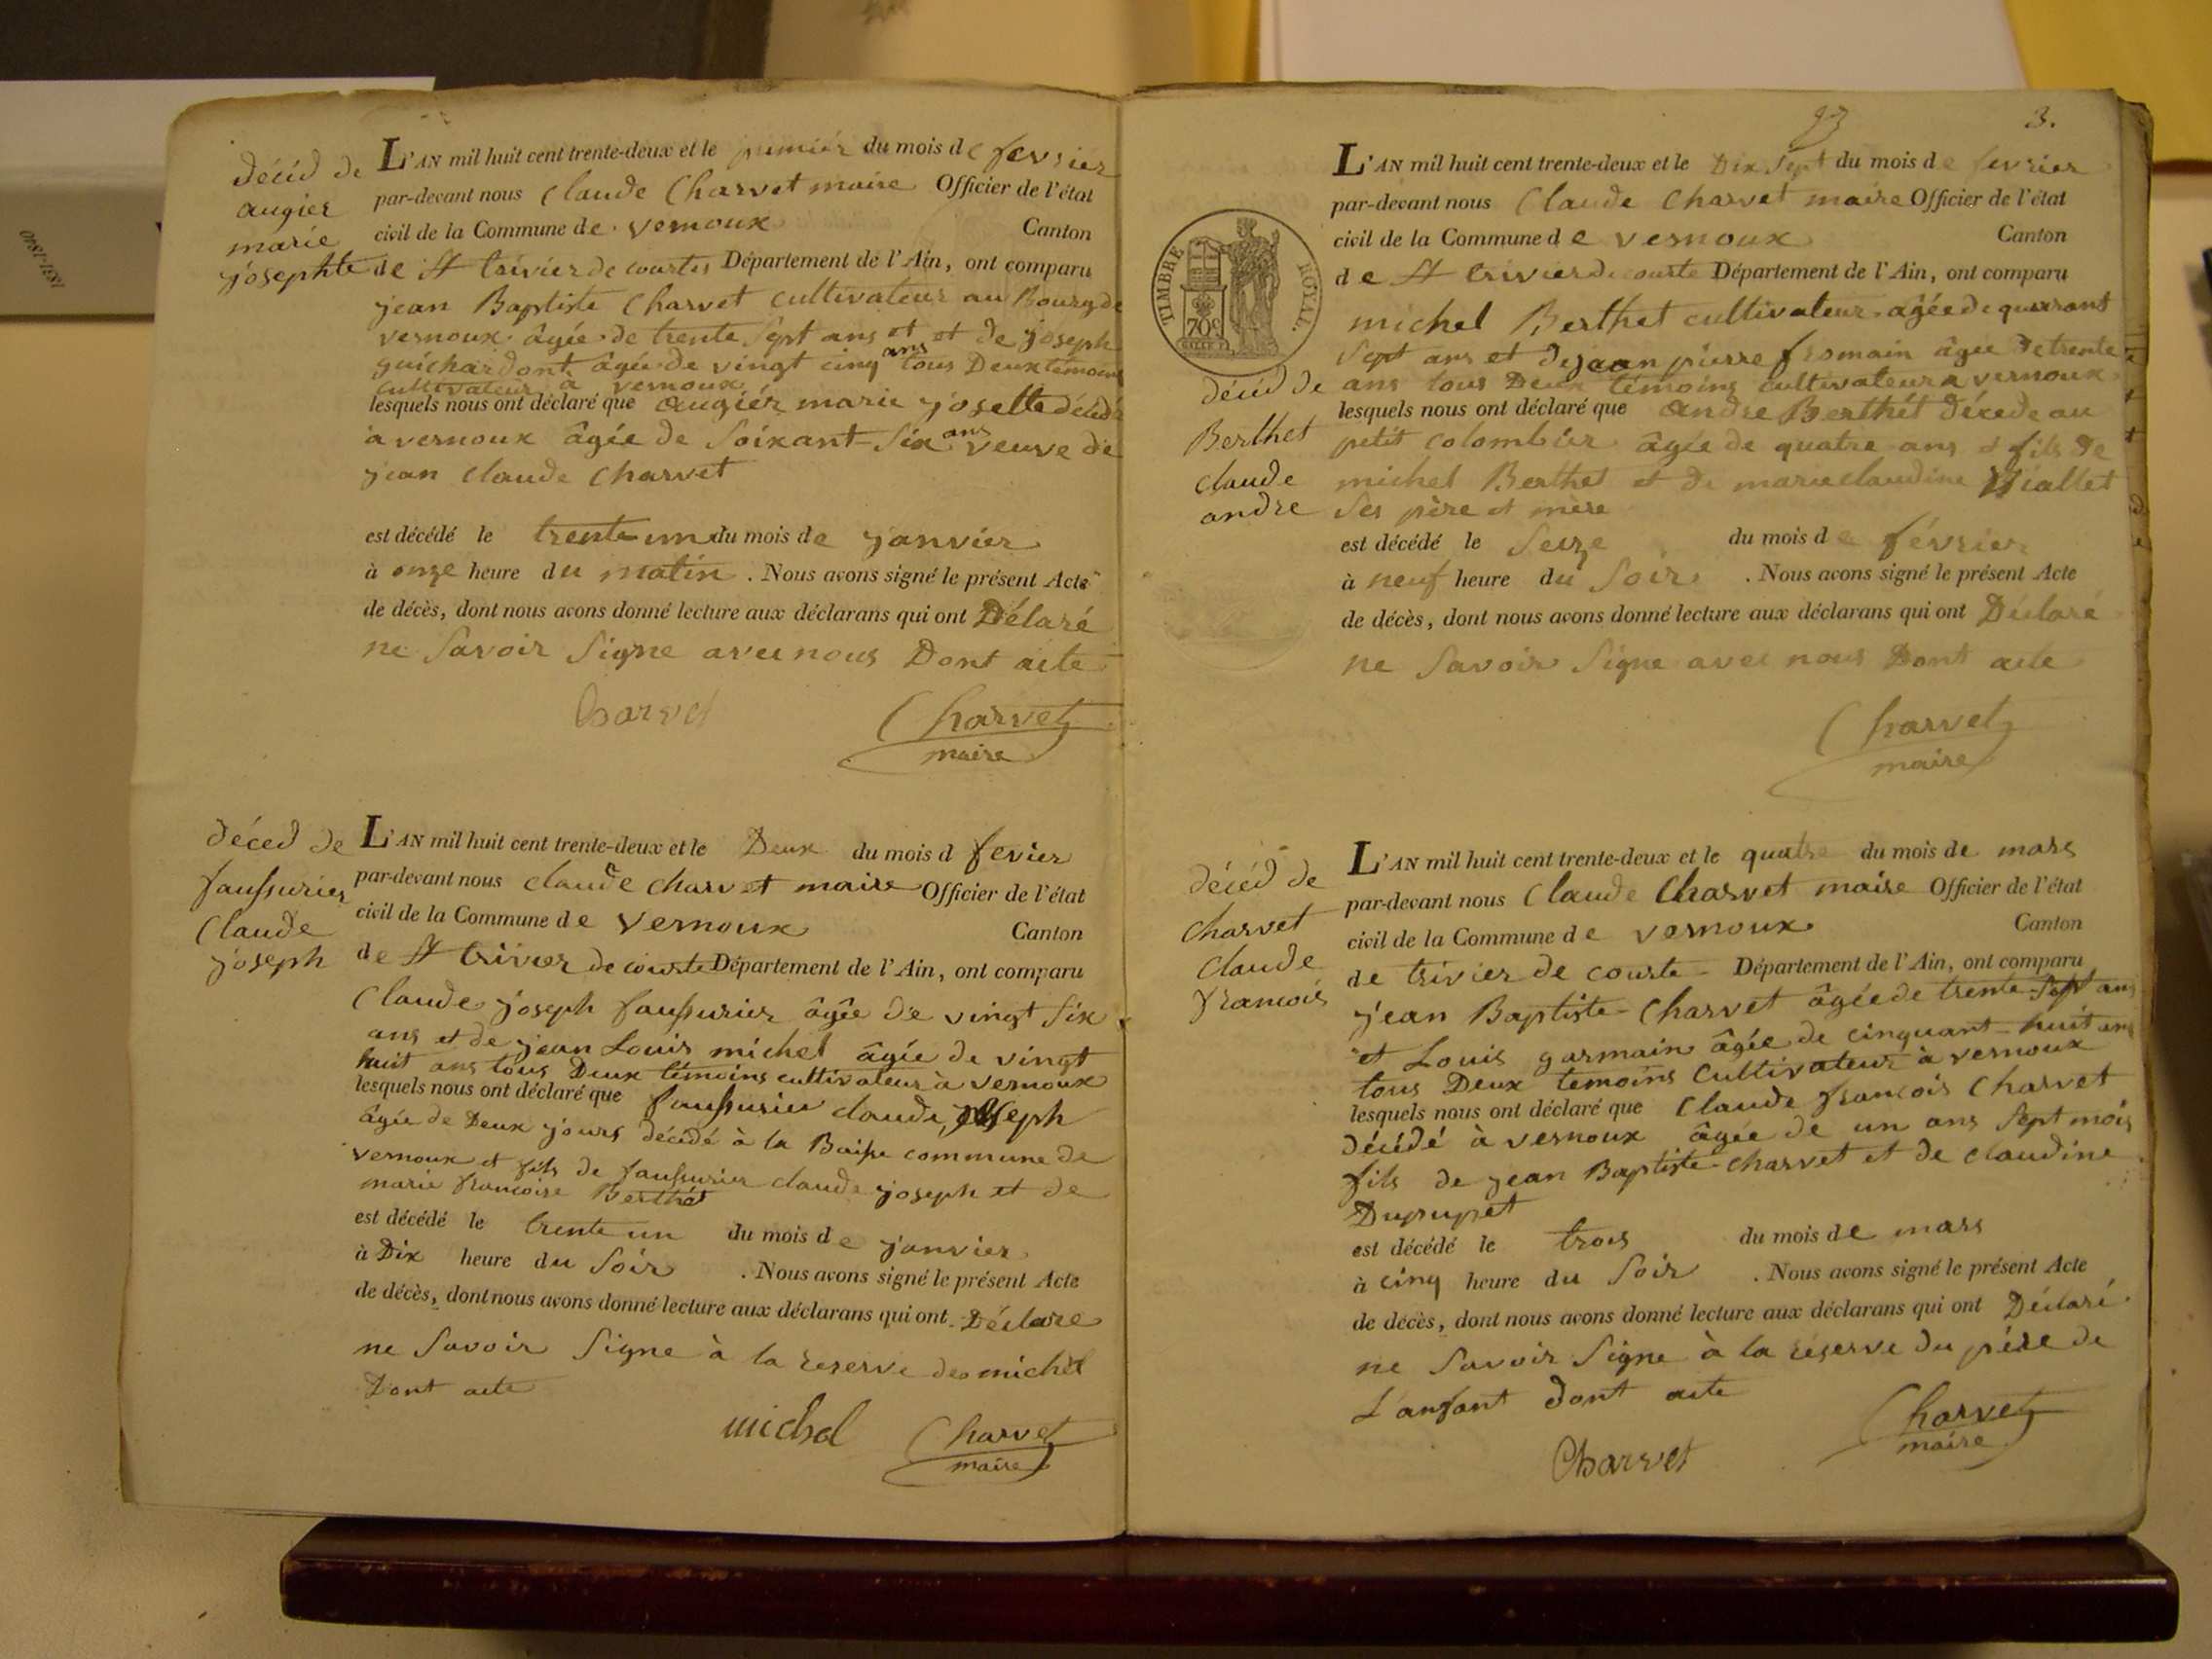 décéd de
augier
marie
josephte
L'AN mil huit cent trente-deux et le premier du mois de fevrier
par-devant nous Claude Charvet maire Officier de l'état
civil de la Commune de vernoux Canton
de St trivier de courtes Département de l'Ain, ont comparu
jean Baptiste Charvet cultivateur au Bourg de
vernoux âgée de trente sept ans et et de joseph
guichardont âgée de vingt cinq ans tous Deux témoins
cultivateur à vernoux
lesquels nous ont déclaré que augiér marie josette décédé
à vernoux âgée de soixant-six ans veuve de
jean Claude Charvet
est décédé le trente-un du mois de janvier
à onze heure du matin . Nous avons signé le présent Acte
de décès, dont nous avons donné lecture aux déclarans qui ont Délaré
ne savoir signe avec nous Dont acte
Charvet Charvet
maire
décéd de
faussurier
Claude
joseph
L'AN mil huit cent trente-deux et le Deux du mois d fevier
par-devant nous claude charvet maire Officier de l'état
civil de la Commune de vernoux Canton
de St trivier de courte Département de l'Ain, ont comparu
Claude joseph faussurier âgêe de vingt six
ans et de jean Louis michel âgée de vingt
huit ans tous Deux témoins cultivateur à vernoux
lesquels nous ont déclaré que faussurier claude joseph
âgée de Deux jours décédé à la Baisse commune de
vernoux et fils de faussurier claude joseph et de
marie françoise Berthet
est décédé le trente un du mois de janvier
à Dix heure du soir . Nous avons signé le présent Acte
de décès, dont nous avons donné lecture aux déclarans qui ont Déclare
ne savoir signe à la reserve de michel
Dont acte
michel Charvet
maire
3.
TIMBRE ROYAL.
70c
décéd de
Berthet
claude
andre
L'AN mil huit cent trente-deux et le Dix sept du mois de fevrier
par-devant nous Claude Charvet maire Officier de l'état
civil de la Commune de vernoux Canton
de St trivier de courte Département de l'Ain, ont comparu
michel Berthet cultivateur âgée de quarant
sept ans et de jean pierre fromain âgée de trente
ans tous Deux témoins cultivateur a vernoux
lesquels nous ont déclaré que andre Berthét décede au
petit colombier âgée de quatre ans et fils de
michel Berthet et de marie claudine Viallet
ses père et mère
est décédé le seize du mois de février
à neuf heure du soir . Nous avons signé le présent Acte
de décès, dont nous avons donné lecture aux déclarans qui ont Déclaré
ne savoir signe avec nous Dont acte
Charvet
maire
décéd de
charvet
claude
francois
L'AN mil huit cent trente-deux et le quatre du mois de mars
par-devant nous Claude Charvet maire Officier de l'état
civil de la Commune de vernoux Canton
de trivier de courte Département de l'Ain, ont comparu
jean Baptiste Charvet âgée de trente-sept ans
et Louis garmain âgée de cinquant-huit ans
tous Deux temoins cultivateur à vernoux
lesquels nous ont déclaré que Claude françois Charvet
décédé à vernoux âgée de un ans sept mois
fils de jean Baptiste charvet et de claudine
Dupupet
est décédé le trois du mois de mars
à cinq heure du soir . Nous avons signé le présent Acte
de décès, dont nous avons donné lecture aux déclarans qui ont Déclaré
ne savoir signe à la réserve du père de
L'anfant dont acte
Charvet Charvet
maire